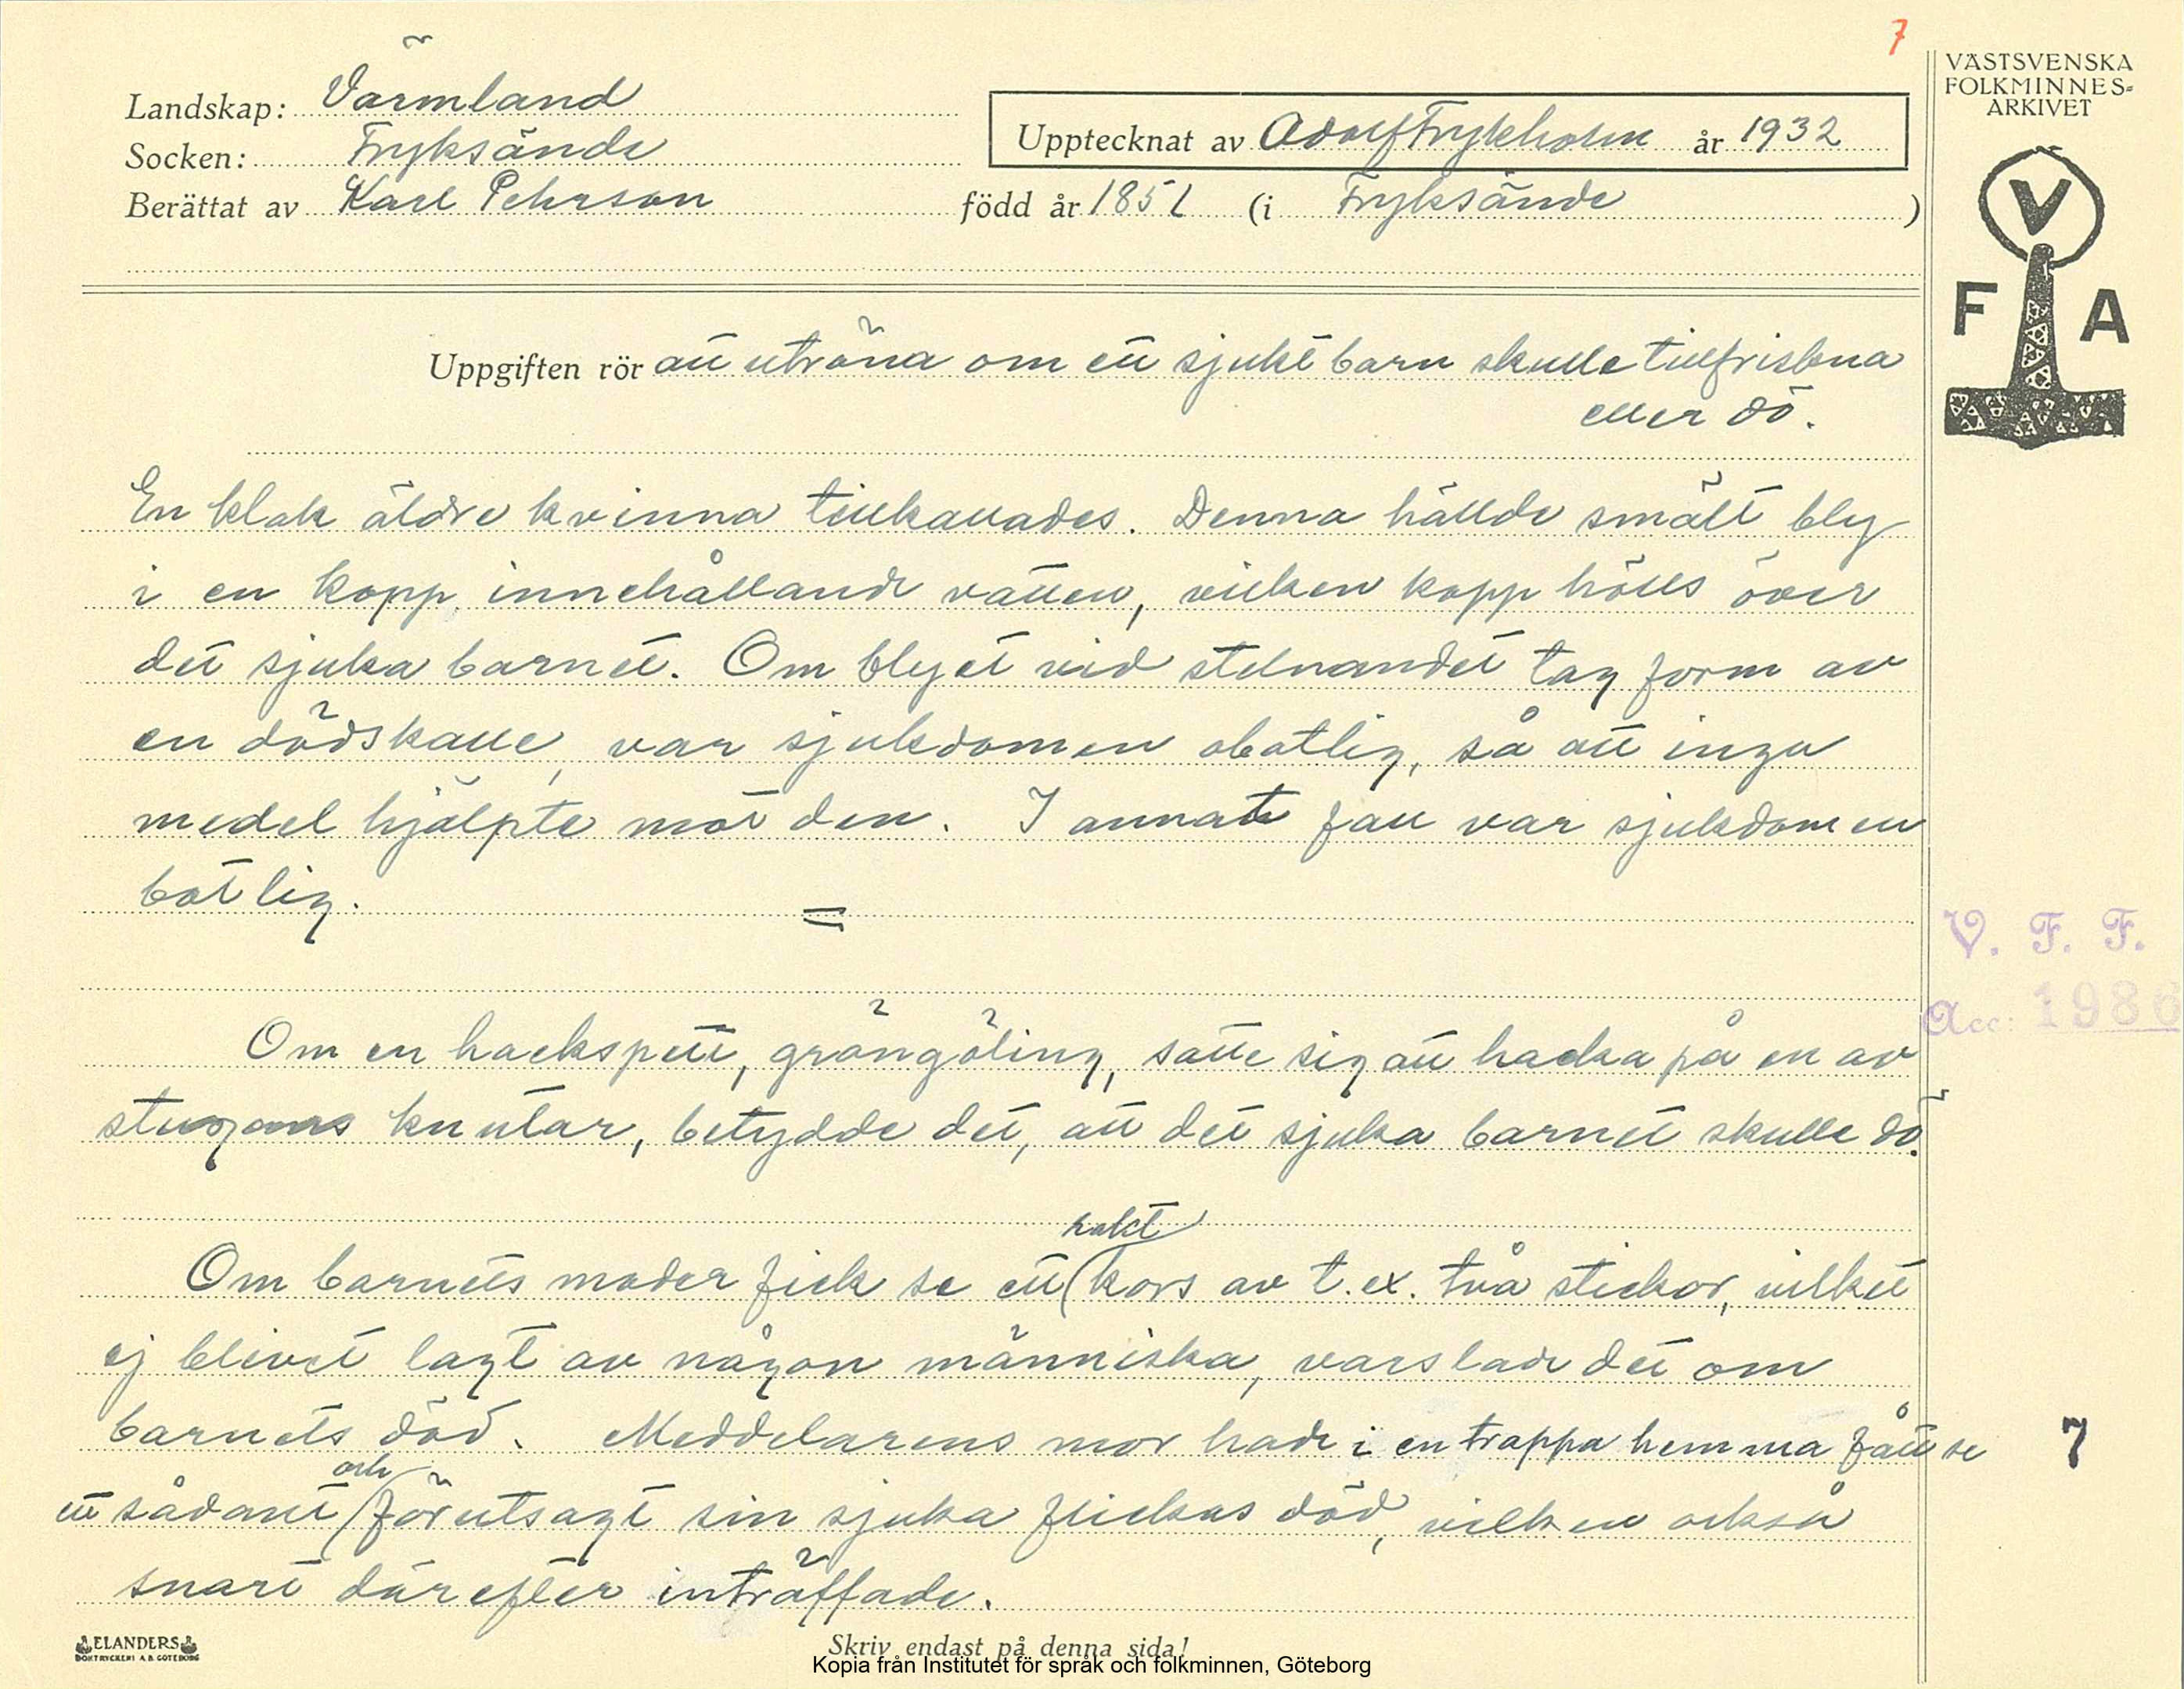 7
VÄSTSVENSKA
FOLKMINNES=
ARKIVET
Landskap: Värmland
Socken: Fryksände
Upptecknat av Adolf Frykholm år 1932
Berättat av Karl Pehrson född år 1851 (i Fryksände)
V
F A
Uppgiften rör att utröna om ett sjukt barn skulle tillfriskna
eller dö.
En klok äldre kvinna tillkallades. Denna hällde smält bly
i en kopp innehållande vatten, vilken kopp hölls över
det sjuka barnet. Om blyet vid stelnandet tog form av
en dödskalle, var sjukdomen obotlig, så att inga
medel hjälpte mot den. I annat fall var sjukdomen
botlig.
=
V. F. F.
Acc: 1986
Om en hackspett, gröngöling, satte sig att hacka på en av
stugans knutar, betydde det, att det sjuka barnet skulle dö.
rakt
Om barnets moder fick se ett (kors av t.ex. två stickor, vilket
ej blivet lagt av någon människa, varslade det om
barnets död. Meddelarens mor hade i en trappa hemma fått se
7
och
ett sådant (förutsagt sin sjuka flickas död, vilken också
snart därefter inträffade.
ELANDERS
BOKTRYCKERI A.B. GÖTEBORG
Skriv endast på denna sida!
Kopia från Institutet för språk och folkminnen, Göteborg